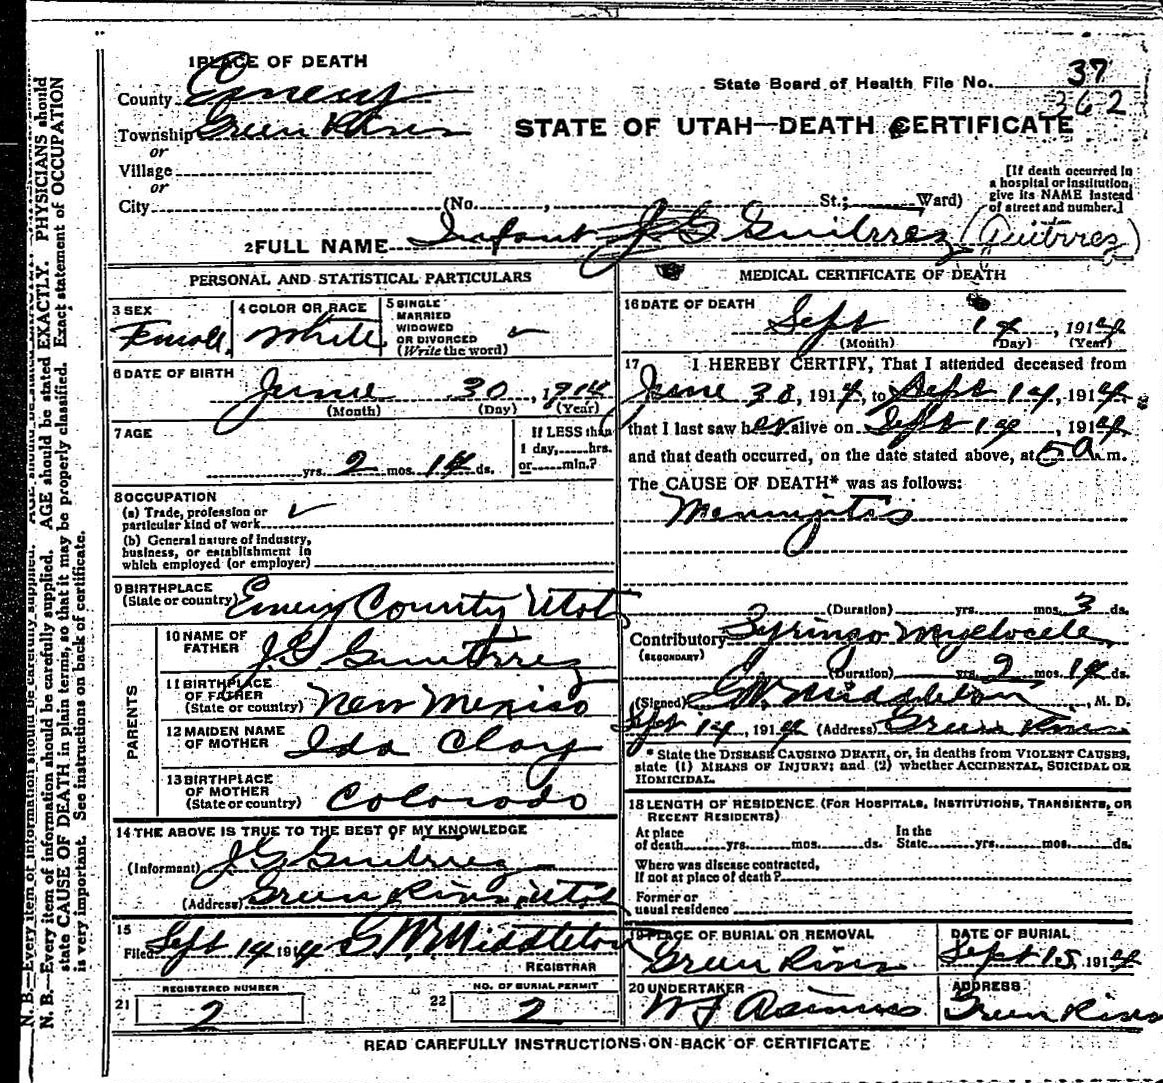 1 PLACE OF DEATH
County Emery
State Board of Health File No. 37
362
Township Green River
or
Village
or
City
STATE OF UTAH—DEATH CERTIFICATE
(No. , St.; Ward)
[If death occurred in
a hospital or institution,
give its NAME instead
of street and number.]
2 FULL NAME Infant J G Guitrrez (Quitrrez)
PERSONAL AND STATISTICAL PARTICULARS
3 SEX
Femall
4 COLOR OR RACE
White
5 SINGLE
MARRIED
WIDOWED
OR DIVORCED
(Write the word)
6 DATE OF BIRTH
June 30, 1914
(Month) (Day) (Year)
7 AGE
yrs. 2 mos. 14 ds.
If LESS than
1 day, hrs.
or min.?
8 OCCUPATION
(a) Trade, profession or
particular kind of work
(b) General nature of industry,
business, or establishment in
which employed (or employer)
9 BIRTHPLACE
(State or country) Emery County Utah
PARENTS
10 NAME OF
FATHER J. G. Guitrrez
11 BIRTHPLACE
OF FATHER
(State or country) New Mexico
12 MAIDEN NAME
OF MOTHER Ida Clay
13 BIRTHPLACE
OF MOTHER
(State or country) Colorado
14 THE ABOVE IS TRUE TO THE BEST OF MY KNOWLEDGE
(Informant) J G Guitrrez
(Address) Green River, Utah
15
Filed Sept 14 1914 G. W. Middleton
REGISTRAR
21 REGISTERED NUMBER
2
22 NO. OF BURIAL PERMIT
2
MEDICAL CERTIFICATE OF DEATH
16 DATE OF DEATH
Sept 14, 1914
(Month) (Day) (Year)
17 I HEREBY CERTIFY, That I attended deceased from
June 30, 1914, to Sept 14, 1914,
that I last saw her alive on Sept 14, 1914
and that death occurred, on the date stated above, at 5 a. m.
The CAUSE OF DEATH* was as follows:
Meningitis
(Duration) yrs. mos. 3 ds.
Contributory Syringo Myelocele
(SECONDARY)
(Duration) yrs. 2 mos. 14 ds.
(Signed) G. W. Middleton, M. D.
Sept 14, 1914 (Address) Green River
* State the DISEASE CAUSING DEATH, or, in deaths from VIOLENT CAUSES,
state (1) MEANS OF INJURY; and (2) whether ACCIDENTAL, SUICIDAL OR
HOMICIDAL.
18 LENGTH OF RESIDENCE (FOR HOSPITALS, INSTITUTIONS, TRANSIENTS, OR
RECENT RESIDENTS)
At place
of death yrs. mos. ds.
In the
State yrs. mos. ds.
Where was disease contracted,
If not at place of death?
Former or
usual residence
19 PLACE OF BURIAL OR REMOVAL
Green River
DATE OF BURIAL
Sept 15, 1914
20 UNDERTAKER
W F Asimus
ADDRESS
Green River
READ CAREFULLY INSTRUCTIONS ON BACK OF CERTIFICATE
N. B.—Every item of information should be carefully supplied. AGE should be stated EXACTLY. PHYSICIANS should
state CAUSE OF DEATH in plain terms, so that it may be properly classified. Exact statement of OCCUPATION
is very important. See instructions on back of certificate.